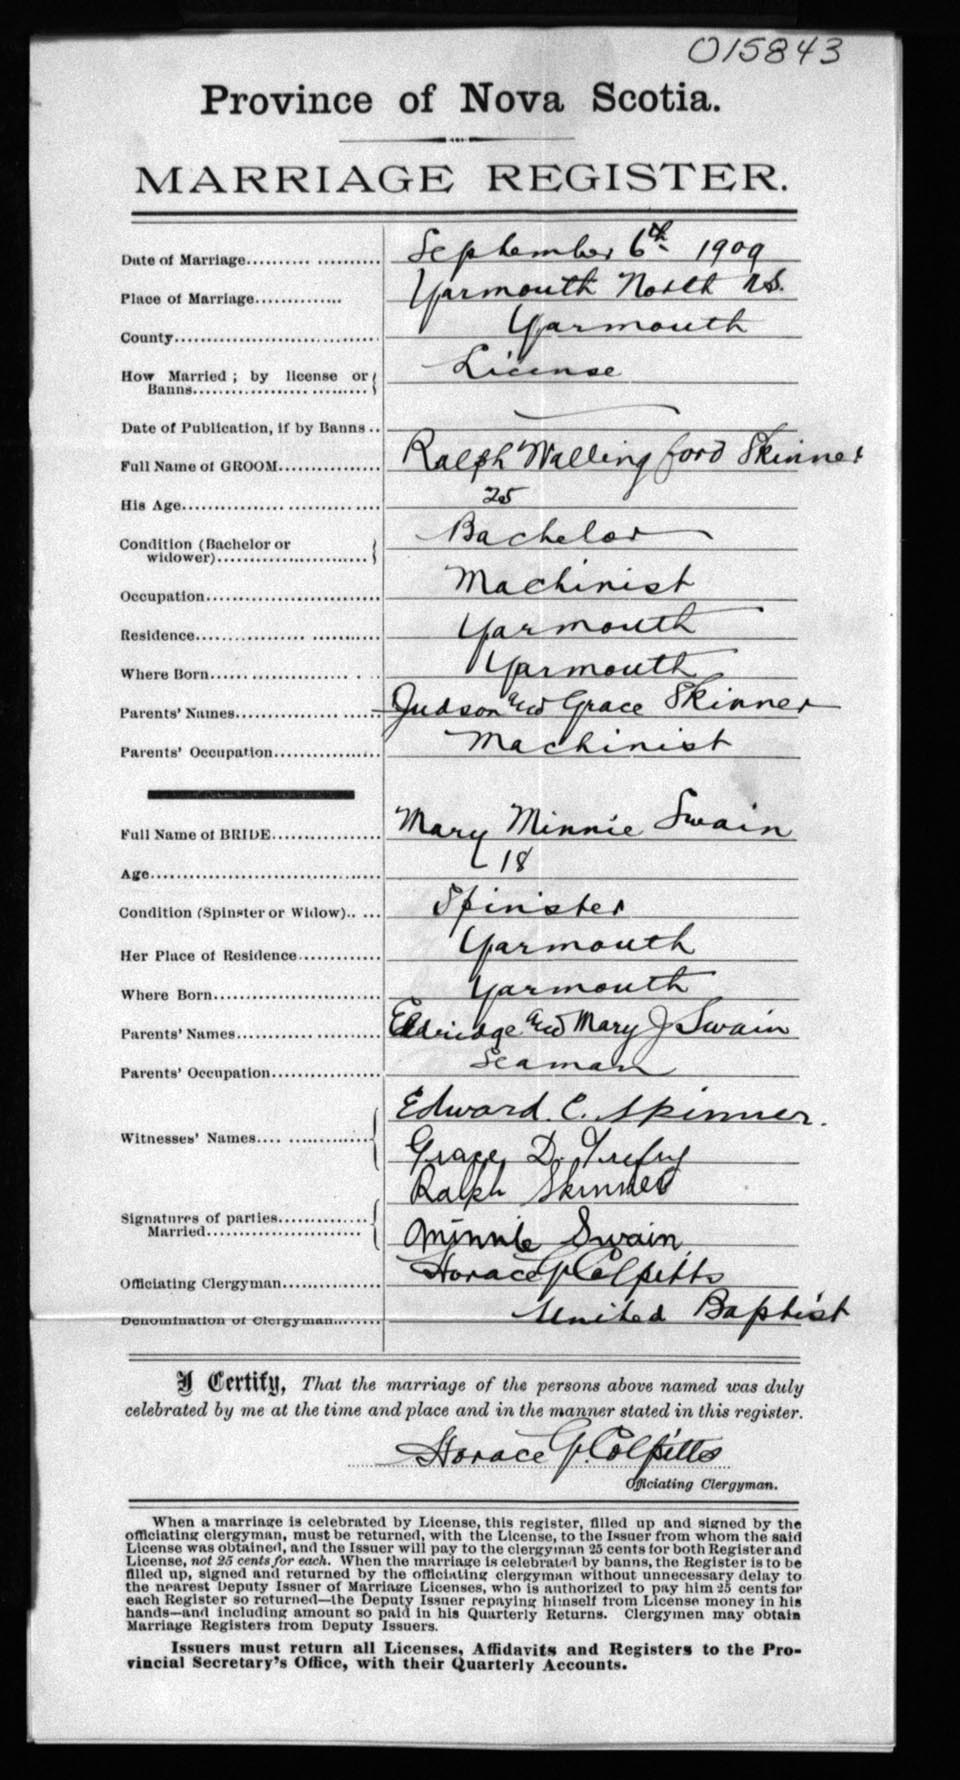 015843
Province of Nova Scotia.
MARRIAGE REGISTER.
Date of Marriage.......... .......... September 6th 1909
Place of Marriage............. Yarmouth North N.S.
County................................ Yarmouth
How Married; by license or Banns................... ......... License
Date of Publication, if by Banns ..
Full Name of GROOM............... Ralph Wallingford Skinner
His Age................ ............... 25
Condition (Bachelor or widower)........................ Bachelor
Occupation........................... Machinist
Residence................ .......... Yarmouth
Where Born...................... . . Yarmouth
Parents' Names................ ...... Judson and Grace Skinner
Parents' Occupation................ Machinist
Full Name of BRIDE................ Mary Minnie Swain
Age.................................... 18
Condition (Spinster or Widow).. ... Spinster
Her Place of Residence............ Yarmouth
Where Born.......................... Yarmouth
Parents' Names............. ......... Eldridge and Mary J Swain
Parents' Occupation................ Seaman
Witnesses' Names.... .............. Edward C. Skinner.
Grace D. Trefry
Signatures of parties Married......................... Ralph Skinner
Minnie Swain
Officiating Clergyman.............. Horace G. Colpitts
Denomination of Clergyman....... United Baptist
I Certify, That the marriage of the persons above named was duly
celebrated by me at the time and place and in the manner stated in this register.
Horace G. Colpitts
Officiating Clergyman.
When a marriage is celebrated by License, this register, filled up and signed by the
officiating clergyman, must be returned, with the License, to the Issuer from whom the said
License was obtained, and the Issuer will pay to the clergyman 25 cents for both Register and
License, not 25 cents for each. When the marriage is celebrated by banns, the Register is to be
filled up, signed and returned by the officiating clergyman without unnecessary delay to
the nearest Deputy Issuer of Marriage Licenses, who is authorized to pay him 25 cents for
each Register so returned—the Deputy Issuer repaying himself from License money in his
hands—and including amount so paid in his Quarterly Returns. Clergymen may obtain
Marriage Registers from Deputy Issuers.
Issuers must return all Licenses, Affidavits and Registers to the Pro-
vincial Secretary's Office, with their Quarterly Accounts.